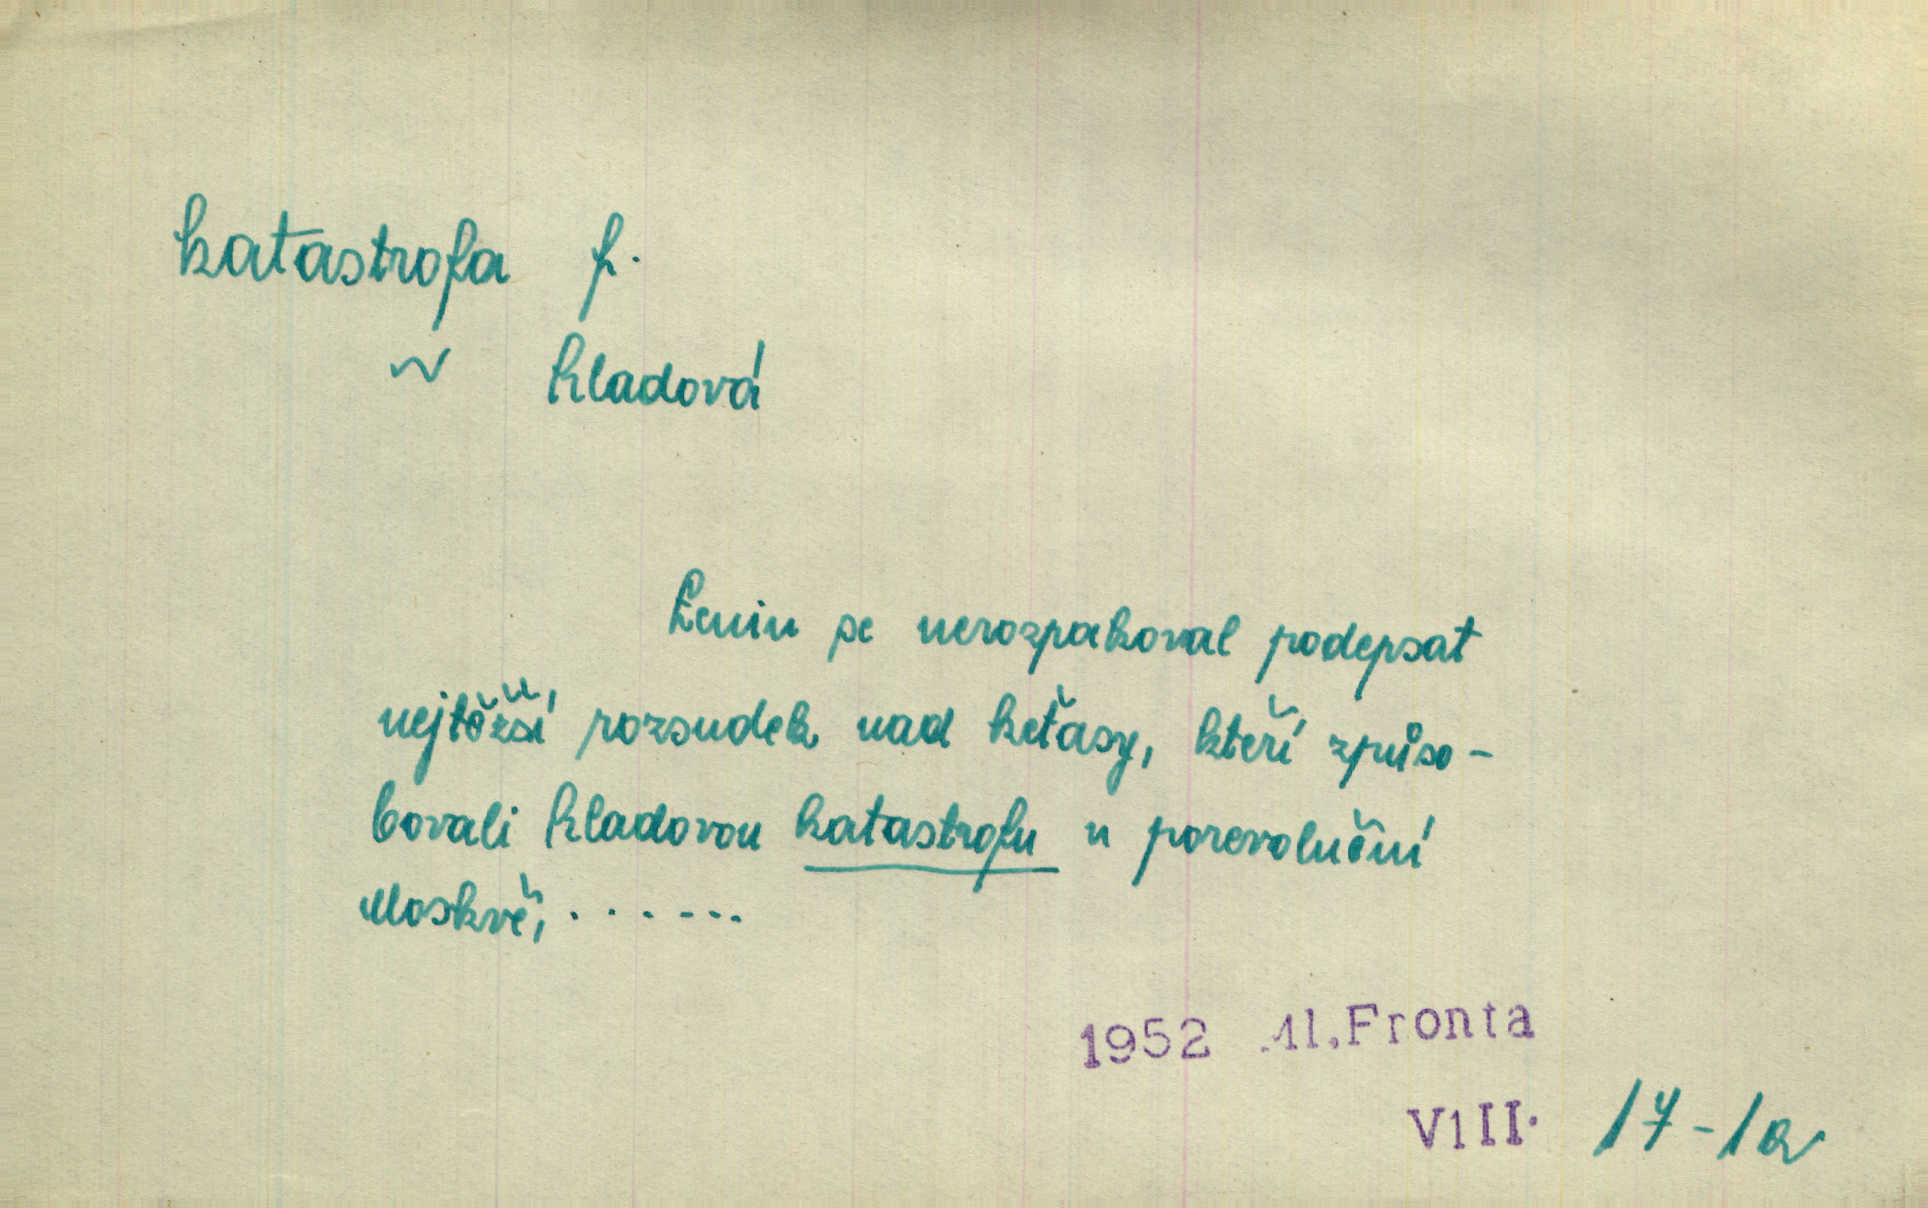 katastrofa f.
~ hladová
Lenin se nerozpakoval podepsat
nejtěžší rozsudek nad keťasy, kteří způso-
bovali hladovou katastrofu v porevoluční
Moskvě, .......
1952 Ml.Fronta
VIII. 17-1a